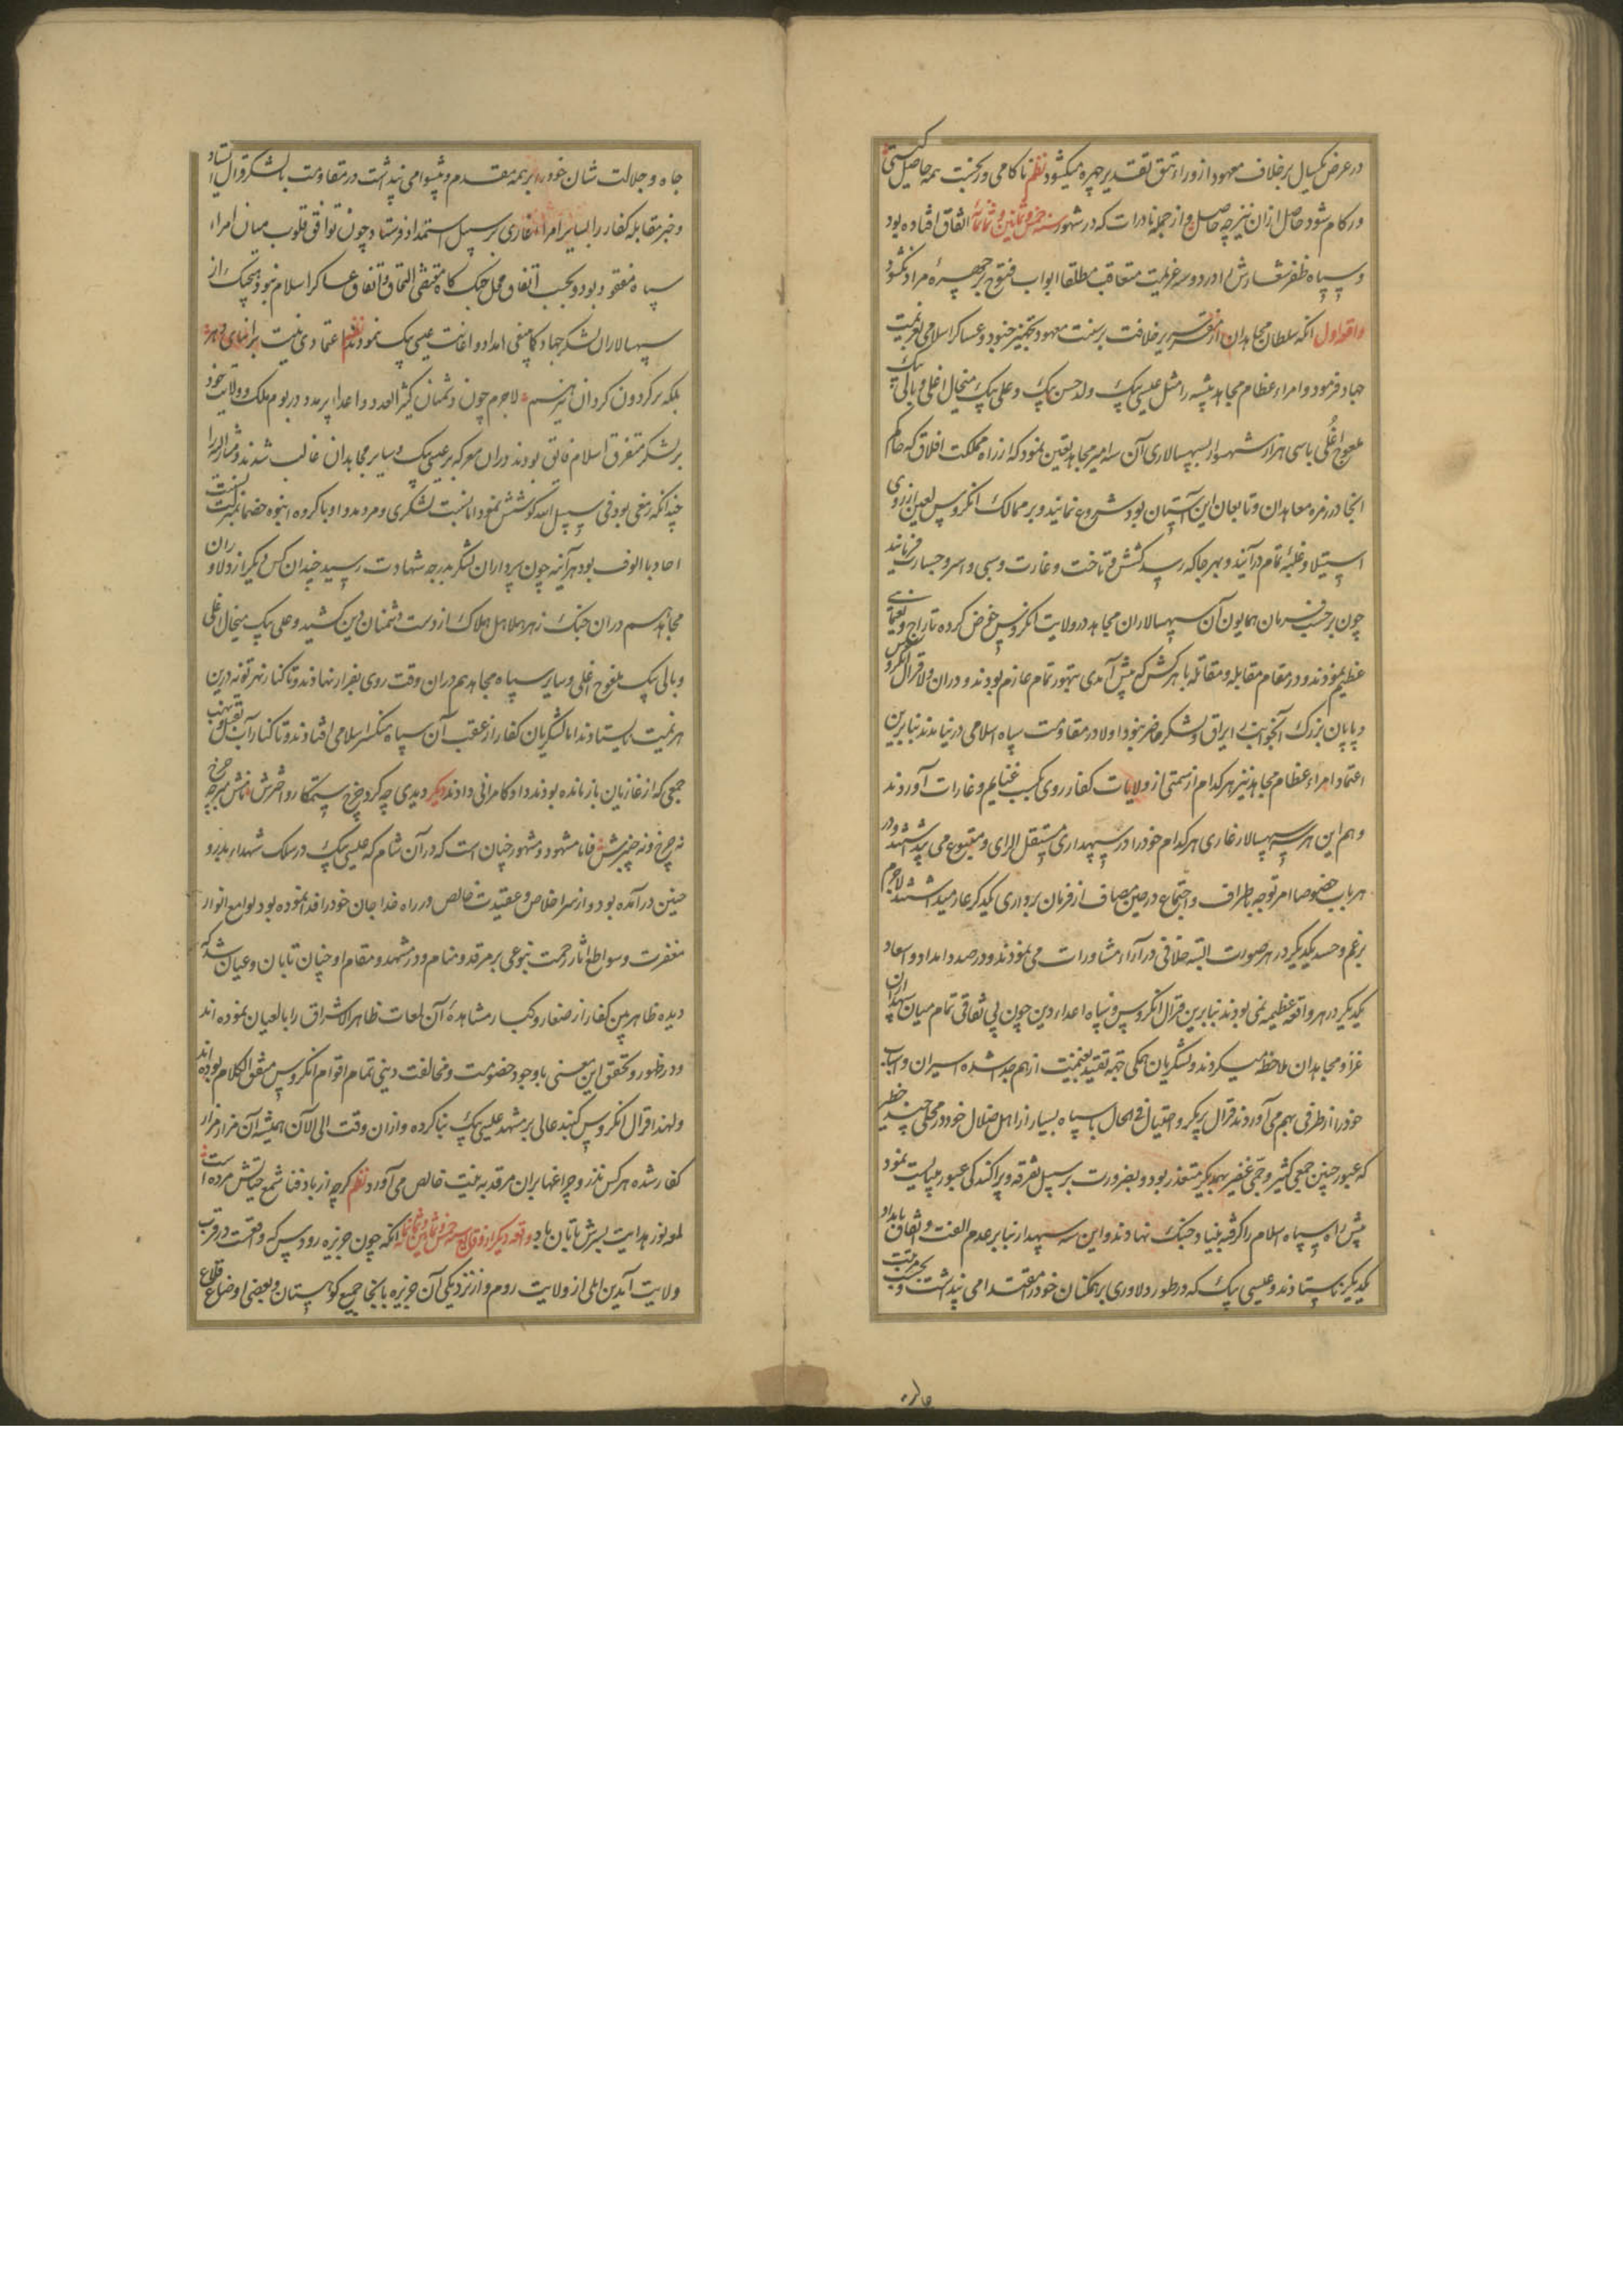 در عرض یکسال بر خلاف معهود از وراء تتق تقدیر چهره میکشود نظم ناکامی ور بخت همه حاصل کیستی
ور کام شود حاصل ازان نیز چه حاصل و از جمله نادرات که در شهور سنه خمس و ثمانین و ثمانمائه اتفاق افتاده بود
و سپاه ظفر شعارش را در دو سه عزیمت متعاقب مطلقا ابواب فتوح بر چهرهٔ مراد نکشود
واقعه اول انکه سلطان مجاهدان از مقر سریر خلافت بر سنت معهود تجهیز جنود و عساکر اسلامی بعزیمت
جهاد فرمود و امراء عظام مجاهد پیشه را مثل عیسی بیک ولد حسن بیک و علی بیک میخال اغلی و بالی بیک
ملعوج اغلی با سی هزار شهسوار بسپهسالاری آن سه امیر مجاهد تعیین نمود که از راه مملکت افلاق که حاکم
انجا در زمره معاهدان و تابعان این آستان بود شروع نمایند و بر ممالک انکروس لعین از روی
استیلا و غلبهٔ تمام درآیند و بهر جا که رسد کشش و تاخت و غارت و سبی و اسر و خسارت فرمایند
چون بر حسب فرمان همایون آن سپهسالاران مجاهد در ولایت انکروس خوض کرده تاراج و یغمای
عظیم نمودند و در مقام مقابله و مقاتله با هرکس که پیش آمدی بتهور تمام عازم بودند و دران ولا قرال انکروس
و پاپان بزرک آنجوانب ایراق و لشکر حاضر نبود اولا در مقاومت سپاه اسلامی در نیامدند بنابرین
اعتماد امراء عظام مجاهد نیز هر کدام از سمتی از ولایات کفار روی بکسب غنایم و غارات آوردند
و هم این هر سه سپهسالار غازی هر کدام خود را در سپهداری مستقل الرای و متبوع می پنداشتند و در
هر باب خصوصا امر توجه باطراف و اجتماع در حین مصاف از فرمان برداری یکدیکر عار میداشتند لاجرم
برغم و حسد یکدیکر در هر صورت البته خلافی در آراء مشاورات می نمودند و در صدد امداد و اسعاد
یکدیکر در هر واقعه عظیمه نمی بودند بنابرین قرال انکروس و سپاه اعداء دین چون بی اتفاقی تمام میان سپهداران
غزا و مجاهدان ملاحظه میکردند و لشکریان همکی بجهة تقیید بغنیمت از هم جدا شده اسیران و اسباب
خود را از طرفی بهم می آوردند قرال پر مکر و احتیال فی الحال با سپاه بسیار از اهل ضلال خود در محلی چند خطیر
که عبور چنین جمعی کثیر و جمی غفیر بیکدیکر متعذر بود و بضرورت بر سبیل تفرقه و پراکندکی عبور میبایست نمود
پیش راه سپاه اسلام را کرفته بنیاد جنک نهادند و این سه سپهدار بنابر عدم الفت و اتفاق بامداد
یکدیکر نایستادند و عیسی بیک که در طور دلاوری بر همکنان خود را مقتدا می پنداشت و بحسب مرتبت
جاه و جلالت شان خود را بر همه مقدم و پیشوا می پنداشت در مقاومت با لشکر قرال ایستاد
و خبر مقابله کفار را بسایر امراء غازی بر سبیل استمداد فرستاد چون توافق قلوب میان امراء
سپاه مفقود بود و بحسب اتفاق محل جنک کاه مقتضی التحاق و اتفاق عساکر اسلام نبود هیچیک از
سپهسالاران لشکر جهاد کما ینبغی امداد و اغاثت عیسی بیک ننمودند نظم اعتمادی نیست بر ابنای دهر
بلکه بر کردون کردان نیز هم لاجرم چون دشمنان کثیر العدد و اعداء پر مدد در بوم ملک و ولایت خود
بر لشکر متفرق اسلام فایق بودند دران معرکه بر عیسی بیک و سایر مجاهدان غالب شدند و مشار الیه را
چندانکه رمقی بود فی سبیل الله کوشش نمود اما نسبت لشکری و مرد مدد او با کروه انبوه خصما نسبت
احاد با الوف بود هر آینه چون سرداران لشکر بدرجه شهادت رسید چندان کس دیکر از دلاوران
مجاهد هم دران جنک زهر هلاهل هلاک از دست دشمنان دین کشید و علی بیک میخال اغلی
و بالی بیک ملعوج اغلی و سایر سپاه مجاهد هم دران وقت روی بفرار نهادند و تا کنار نهر تونه درین
هزیمت نایستادند اما لشکریان کفار از عقب آن سپاه منکسر اسلامی افتادند و تا کنار آب بقتل و نهب
جمعی که از غازیان باز مانده بودند داد کامرانی دادند دیکر دیدی چه کرد چرخ ستمکار و اخترش نامش مبر چه چرخ
نه چرخ و نه چنبرش فاما مشهود و مشهور چنان است که در آن شام که عیسی بیک در سلک شهداء بدر و
حنین در آمده بود و از سر اخلاص و عقیدت خالص در راه خدا جان خود را فدا نموده بود لوامع انوار
مغفرت و سواطع اثار رحمت بنوعی بر مرقد و منام و در مشهد و مقام او چنان تابان و عیان شد که
دیده ظاهر بین کفار از صغار و کبار مشاهدهٔ آن لمعات ظاهر الاشراق را بالعیان نموده اند
و در ظهور و تحقق این معنی با وجود خصومت و مخالفت دینی تمام اقوام انکروس متفق الکلام بوده اند
و لهذا قرال انکروس کنبد عالی بر مشهد عیسی بیک بنا کرده و ازان وقت الی الآن همیشه آن مزار مزار
کفار شده هر کس نذر و چراغها بران مرقد به نیت خالص می آورد نظم کرچه از باد فنا شمع حیاتش مرده است
لمعه نور هدایت بسرش تابان باد واقعه دیکر از وقایع سنه خمس و ثمانین و ثمانمائه انکه چون جزیره رودس که واقعست در قرب
ولایت آیدین ایلی از ولایت روم و از نزدیکی آن جزیره بانجا جمیع کوهستان و بعضی اوضاع قلاع